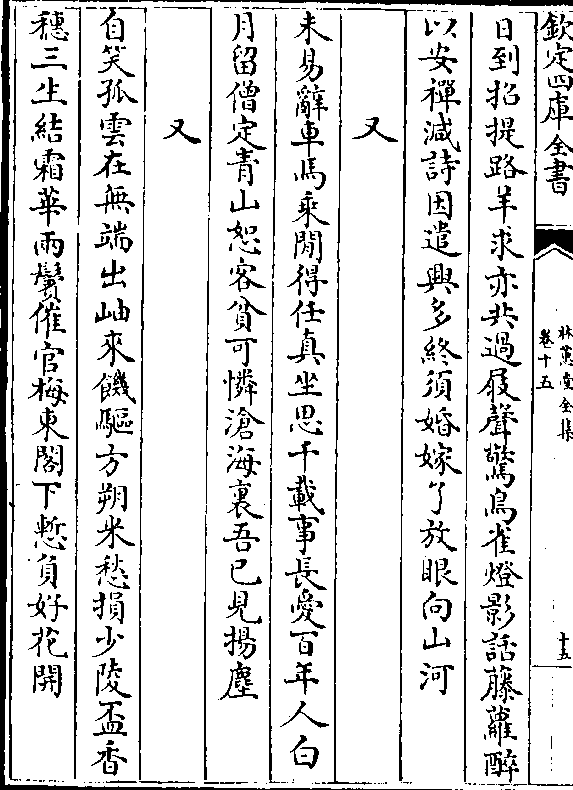 欽定四庫全書
林蕙堂全集
卷十五
十五
日到招提路羊求亦共過屐聲驚鳥雀燈影話藤蘿醉
以安禪減詩因遣興多終須婚嫁了放眼向山河
又
未易辭車馬乘閒得任真坐思千載事長愛百年人白
月留僧定青山恕客貧可憐滄海裏吾已見揚塵
又
自笑孤雲在無端出岫來饑驅方朔米愁損少陵盃香
穗三生結霜華兩鬢催官梅東閣下慙負好花開